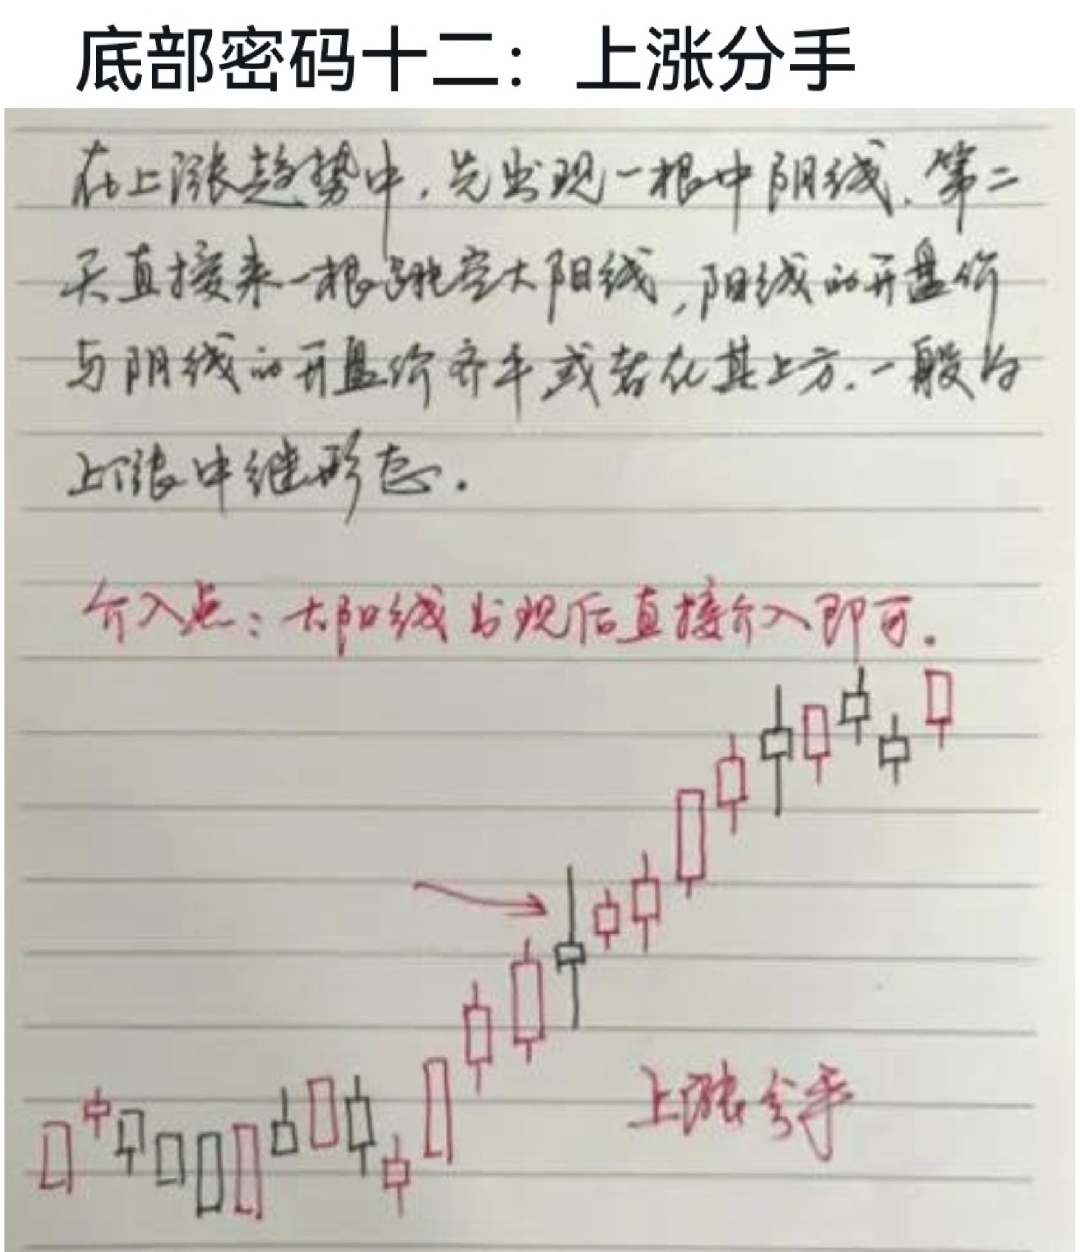 底部密码十二：上涨分手
在上涨趋势中，先出现一根中阴线，第二
天直接来一根跳空大阳线，阳线的开盘价
与阴线的开盘价齐平或者在其上方，一般为
上涨中继形态。
介入点：大阳线出现后直接介入即可。
上涨分手